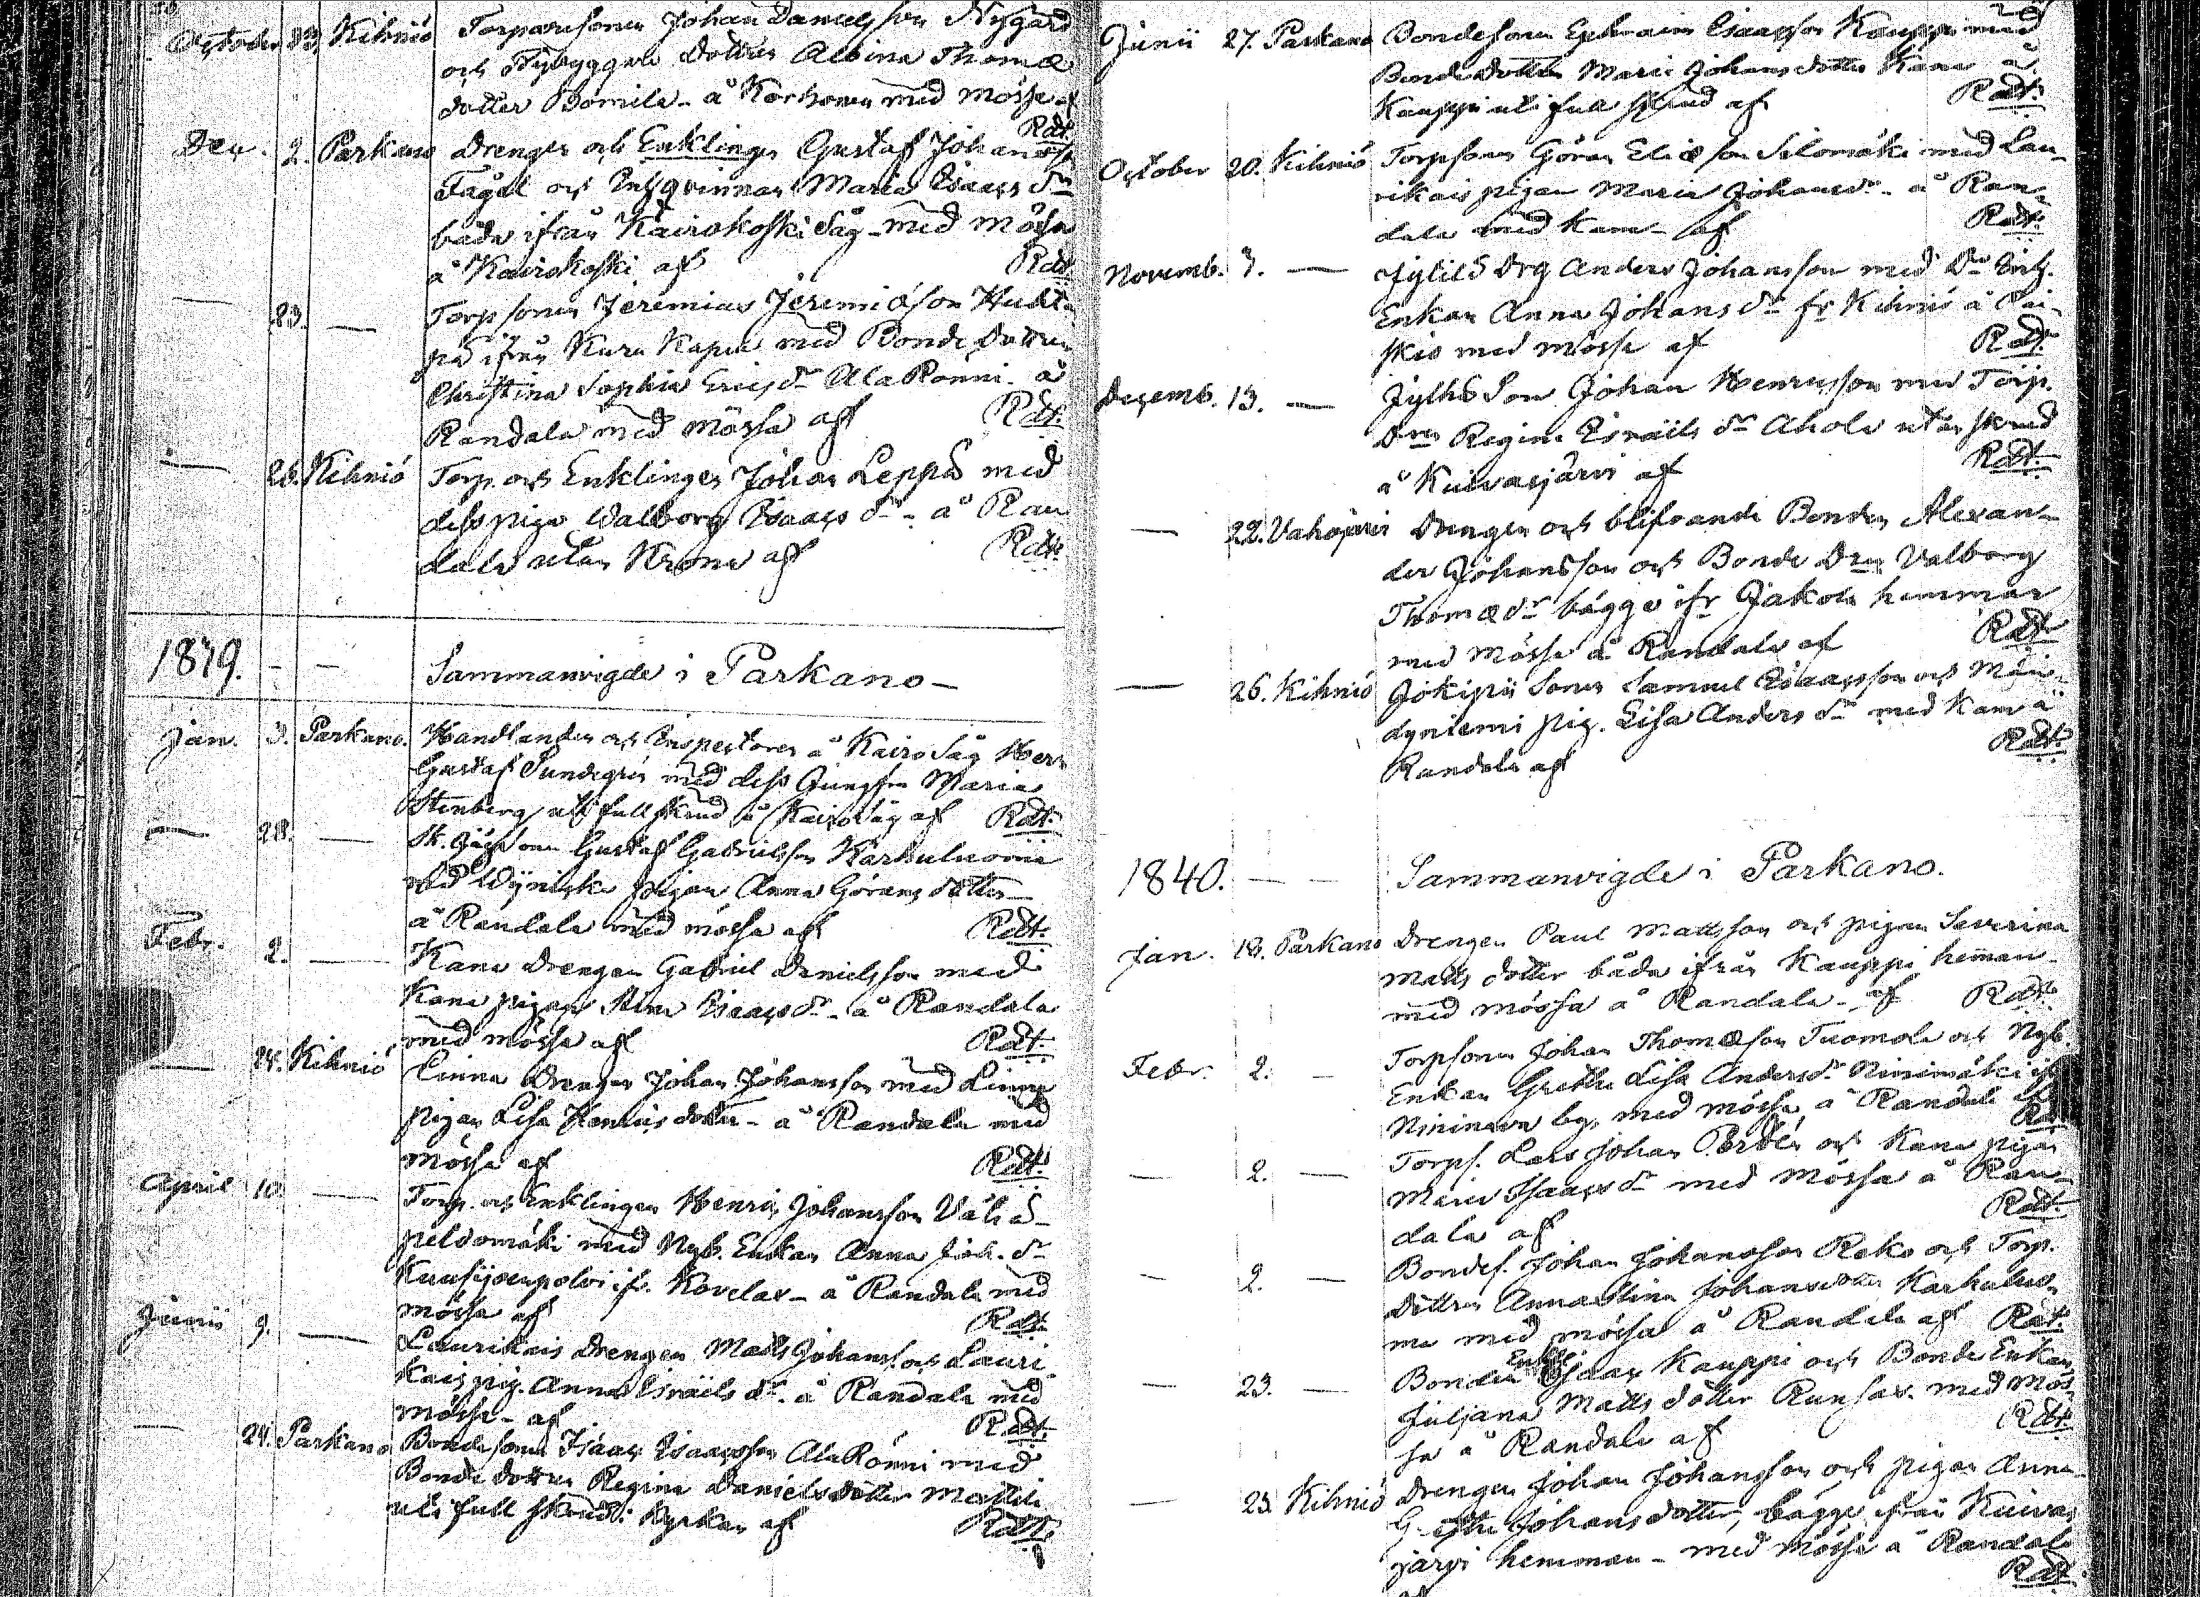 October 23. Kihniö Torparesonen Johan Danielsson Nygård
och Nybyggare Dottren Albina Thomæ
dotter Bomila - å Korhonen med mössa af
Rdt.
Dec. 2. Parkano Drengen och Enklingen Gustaf Johansson
Fågel och Enkqvinnan Maria Isaacs dr
båda ifrån Kairokoski Såg - med mössa
å Kairokoski af Rdt.
— 23. — Torpsonen Jeremias Jeremiæson Huht-
pä ifrån Kuru Kapell med Bonde Dottren
Christina Sophia Erics dr Ala Ronni - å
Randala med mössa af Rdt.
— 26. Kihniö Torp. och Enklingen Johan Leppä med
dess piga Walborg Isaacs dr - å Ran
dala utan Krona af Rdt.
1839. - - Sammanvigde i Parkano -
Jan. 3. Parkano. Handlanden och Inspectoren å Kairo Såg Herr
Gustaf Sundegrén med dess Jungfru Maria
Stenberg uti full skrud å Kairo såg af Rdt.
— 28. — Sk. Jägs son Gustaf Gabrielsson Karhuluoma
med Wyniske pigan Anna Görans dotter -
å Randala med mössa af Rdt.
Febr. 2. — Kana Drengen Gabriel Danielsson med
Kana pigan Stina Isaacs dr - å Randala
med mössa af Rdt.
— 24. Kihniö Linna Drengen Johan Johansson med Linna
pigan Lisa Henrics dotter - å Randala med
mössa af Rdt.
April 10. — Torp. och Enklingen Henric Johansson Väliä-
peldomäki med Nyb. Enkan Anna Joh. dr
Kuusijoenpolvi ifr. Kovelax - å Randala med
mössa af Rdt.
Junii 9. — Laurikais Drengen Matts Johansson Lauri
kais pig. Anna Israëls dr - å Randala med
mössa - af Rdt.
— 24. Parkano Bondesonen Isaac Isaacsson AlaRönni med
Bonde Dottren Regina Daniels dotter
uti full skrud i Kyrkan af Rdt.
Junii 27. Parkano Bondesonen Ephraim Isaacsson Kauppi med
Bonde Dottren Maria Johans dotter Kana å
Kauppi uti full skrud af Rdt.
October 20. Kihniö Torpsonen Göran Eliæson Silomäki med Lau-
rikais pigan Maria Johans dr - å Ran-
dala med Kana - af Rdt.
Novemb. 3. — Drg Anders Johansson med Do Inh.
Enkan Anna Johans dr fr Kihniö å
med mössa af Rdt.
Decemb. 13. — Jylhä Son Johan Henricsson med Torp.
Drn Regina Israëls dr Ahola utan skrud
å Kuivasjärvi af Rdt.
— 22. Vahojärvi Drengen och blifvande Bonden Alexan-
der Johansson och Bonde Drn Valborg
Thomæ dr bägge ifr Jakola hemman
med mössa å Randala af Rdt.
— 26. Kihniö Jokipii Sonen Samuel Isaacsson och Män-
dyniemi pig. Lisa Anders dr med Kana å
Randala af Rdt.
1840. - - Sammanvigde i Parkano.
Jan. 18. Parkano Drengen Paul Mattsson och pigan Severina
Matts dotter båda ifrån Kauppi heman -
med mössa å Randala - af Rdt.
Febr. 2. - Torpsonen Johan Thomæson Tuomola och Nyb.
Enkan Gretha Lisa Anders dr Niinimäki ifr
by, med mössa å Randala af
Rdt.
— 2. — Torps. Lars Johan och Kana pigan
Maria Isaacs dr med mössa å Ran-
dala af Rdt.
— 2. — Bondes. Johan Johansson Roko och Torp.
Dottren Anna Stina Johansdotter Karhuluo-
ma med mössa å Randala af Rdt.
— 23. — Bonden Enkl. Isaac Kauppi och Bonde Enkan
Juljana Matts dotter med mös-
sa å Randala af Rdt.
— 23. Kihniö Drengen Johan Johansson och pigan Anna
Gretha Johans dotter, bägge ifrån Kuivas
järvi hemman - med mössa å Randala
Rdt.